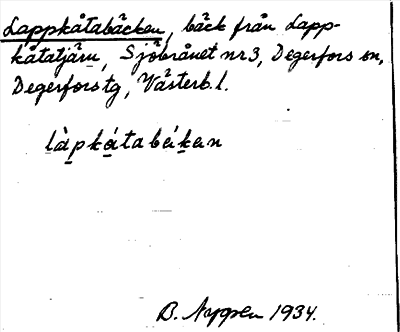 Lappkåtabäcken, bäck från Lapp-
kåtatjärn, Sjöbrånet nr 3, Degerfors sn,
Degerfors tg, Västerb. l.
làpkátabákan
B. Nygren 1934.